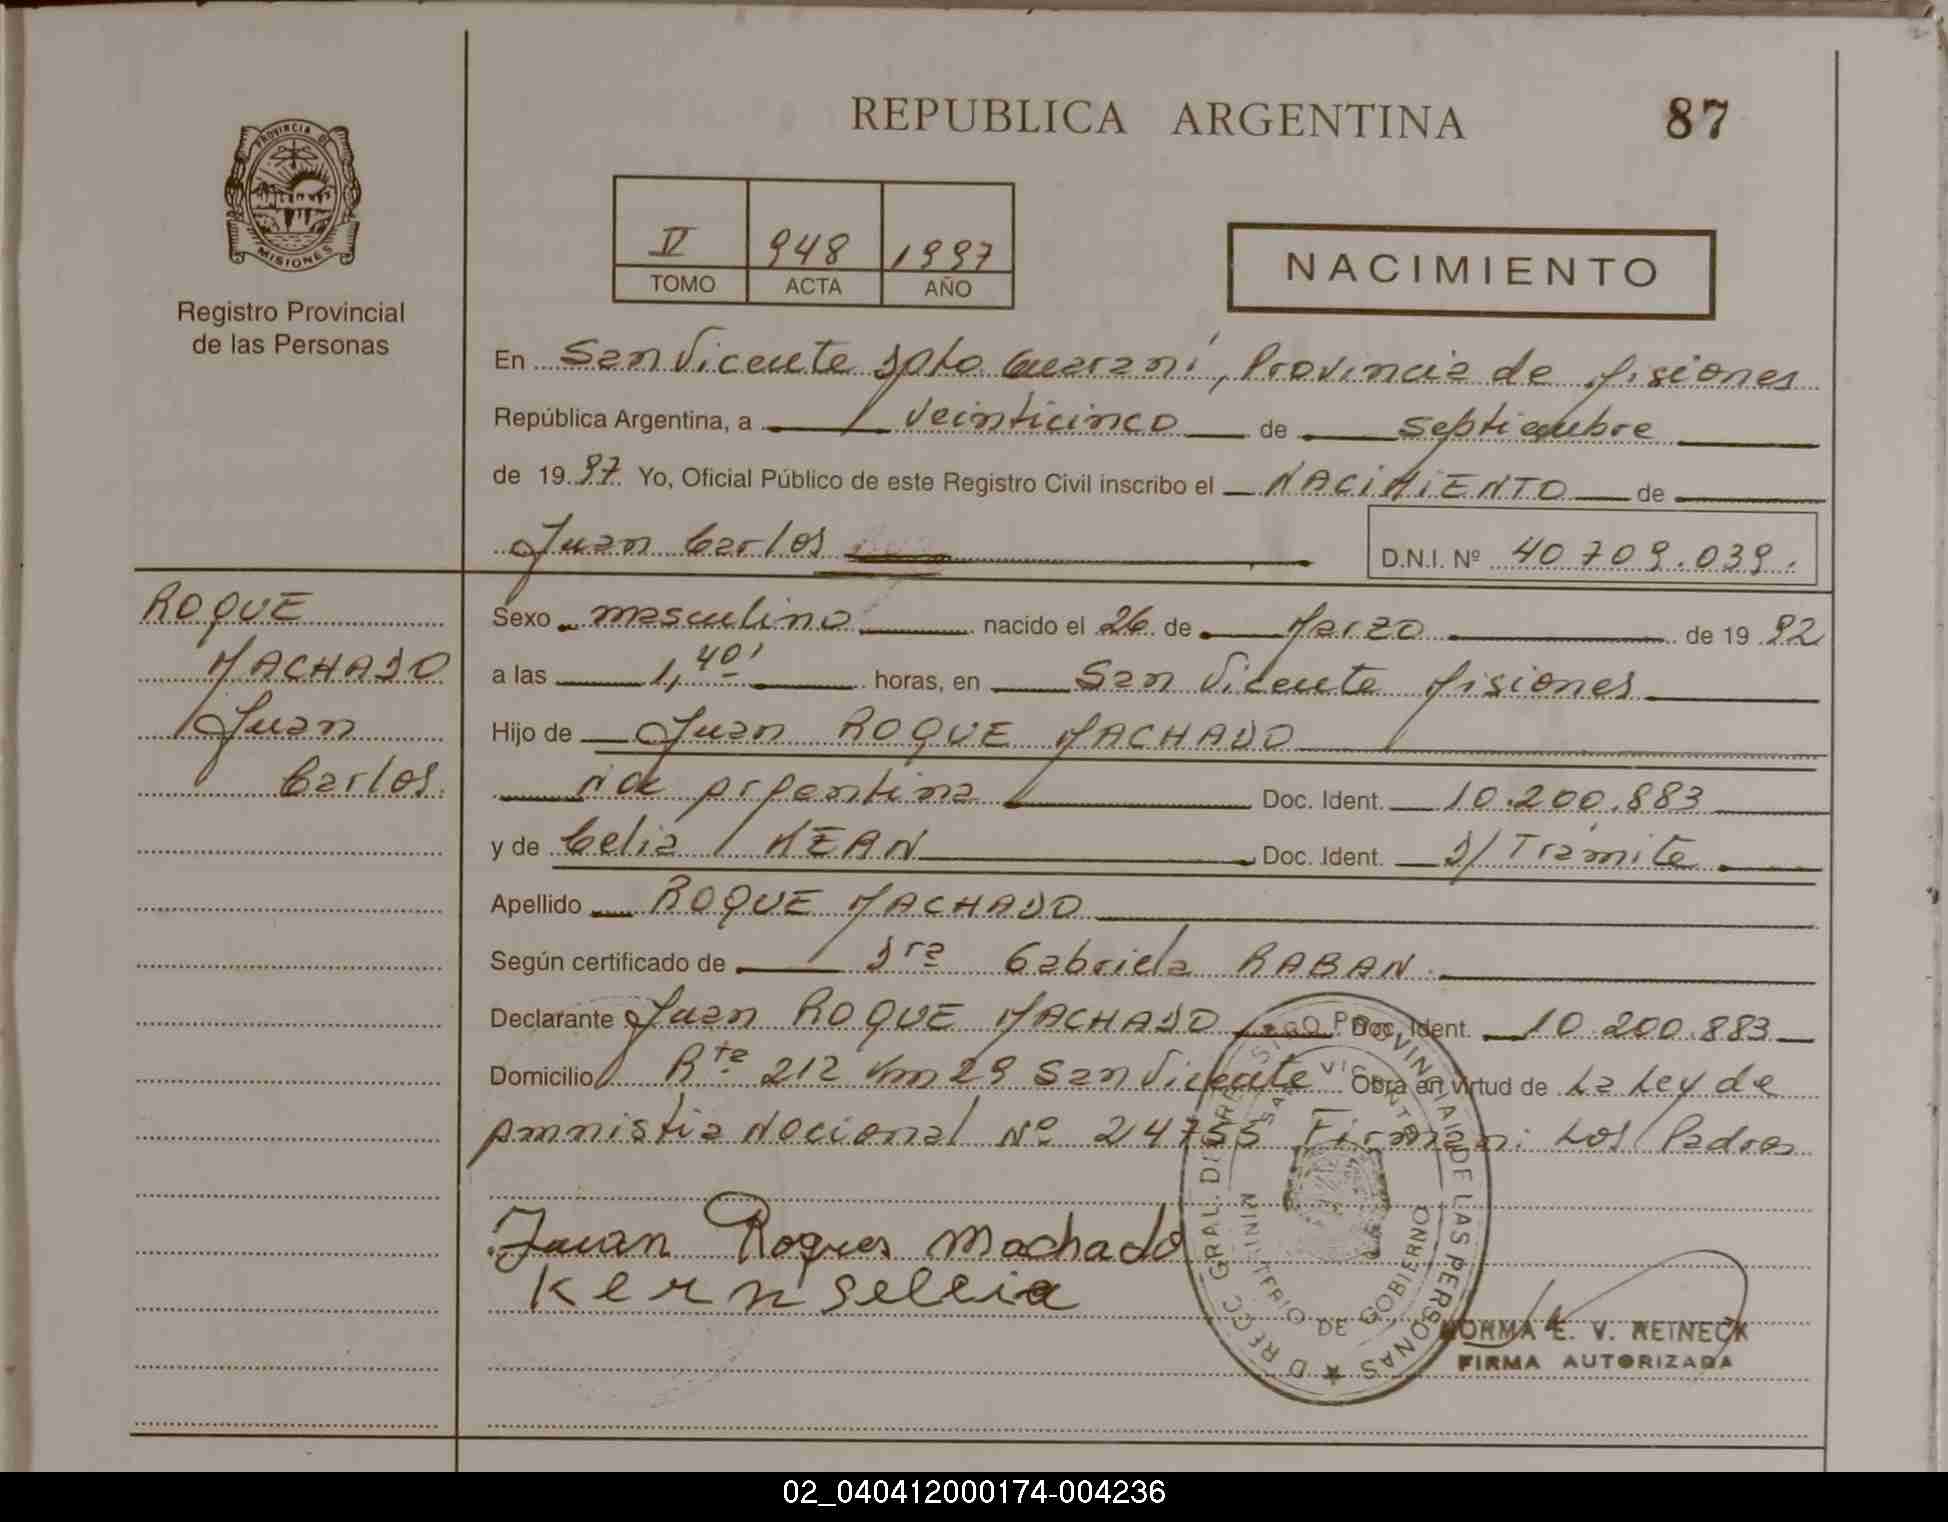 REPUBLICA ARGENTINA
87
PROVINCIA DE
MISIONES
Registro Provincial
de las Personas
IV 948 1997
TOMO ACTA AÑO
NACIMIENTO
En San Vicente Dpto Guaraní, Provincia de Misiones
República Argentina, a veinticinco de septiembre
de 1997 Yo, Oficial Público de este Registro Civil inscribo el NACIMIENTO de
Juan Carlos
D.N.I. Nº 40709.039.
ROQUE
MACHADO
Juan
Carlos.
Sexo masculino nacido el 26 de Marzo de 1992
a las 1,40' horas, en San Vicente Misiones
Hijo de Juan ROQUE MACHADO
Nac Argentina Doc. Ident. 10.200.883
y de Celia KERN Doc. Ident. S/ Trámite
Apellido ROQUE MACHADO
Según certificado de Dra Gabriela RABAN
Declarante Juan ROQUE MACHADO Doc. Ident. 10.200.883
Domicilio Rta 212 Km 29 San Vicente Obra en virtud de La Ley de
Amnistia Nacional Nº 24755 Firman: Los Padres
Juan Roques Machado
Kern Sellia
DIRECC GRAL. DEL REGISTRO PROVINCIAL DE LAS PERSONAS
SAN VICENTE
MINISTERIO DE GOBIERNO
NORMA E. V. REINECK
FIRMA AUTORIZADA
02_040412000174-004236